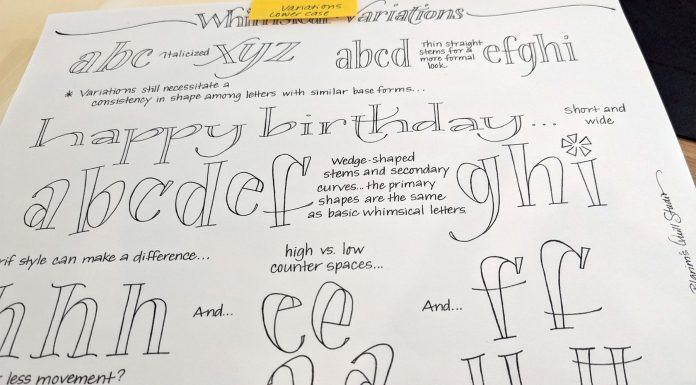 Variations
Lower case
Whimsical Variations
abc Italicized xyz
abcd Thin straight stems for a more formal look efghi
* Variations still necessitate a
consistency in shape among letters with similar base forms...
happy birthday... short and wide
abcdef
Wedge-shaped
stems and secondary
curves... the primary
shapes are the same
as basic whimsical letters
ghi
style can make a difference...
high vs. low
counter spaces...
h h h And... e e And... f f
less movement?
Pilgrim's Quill Studio